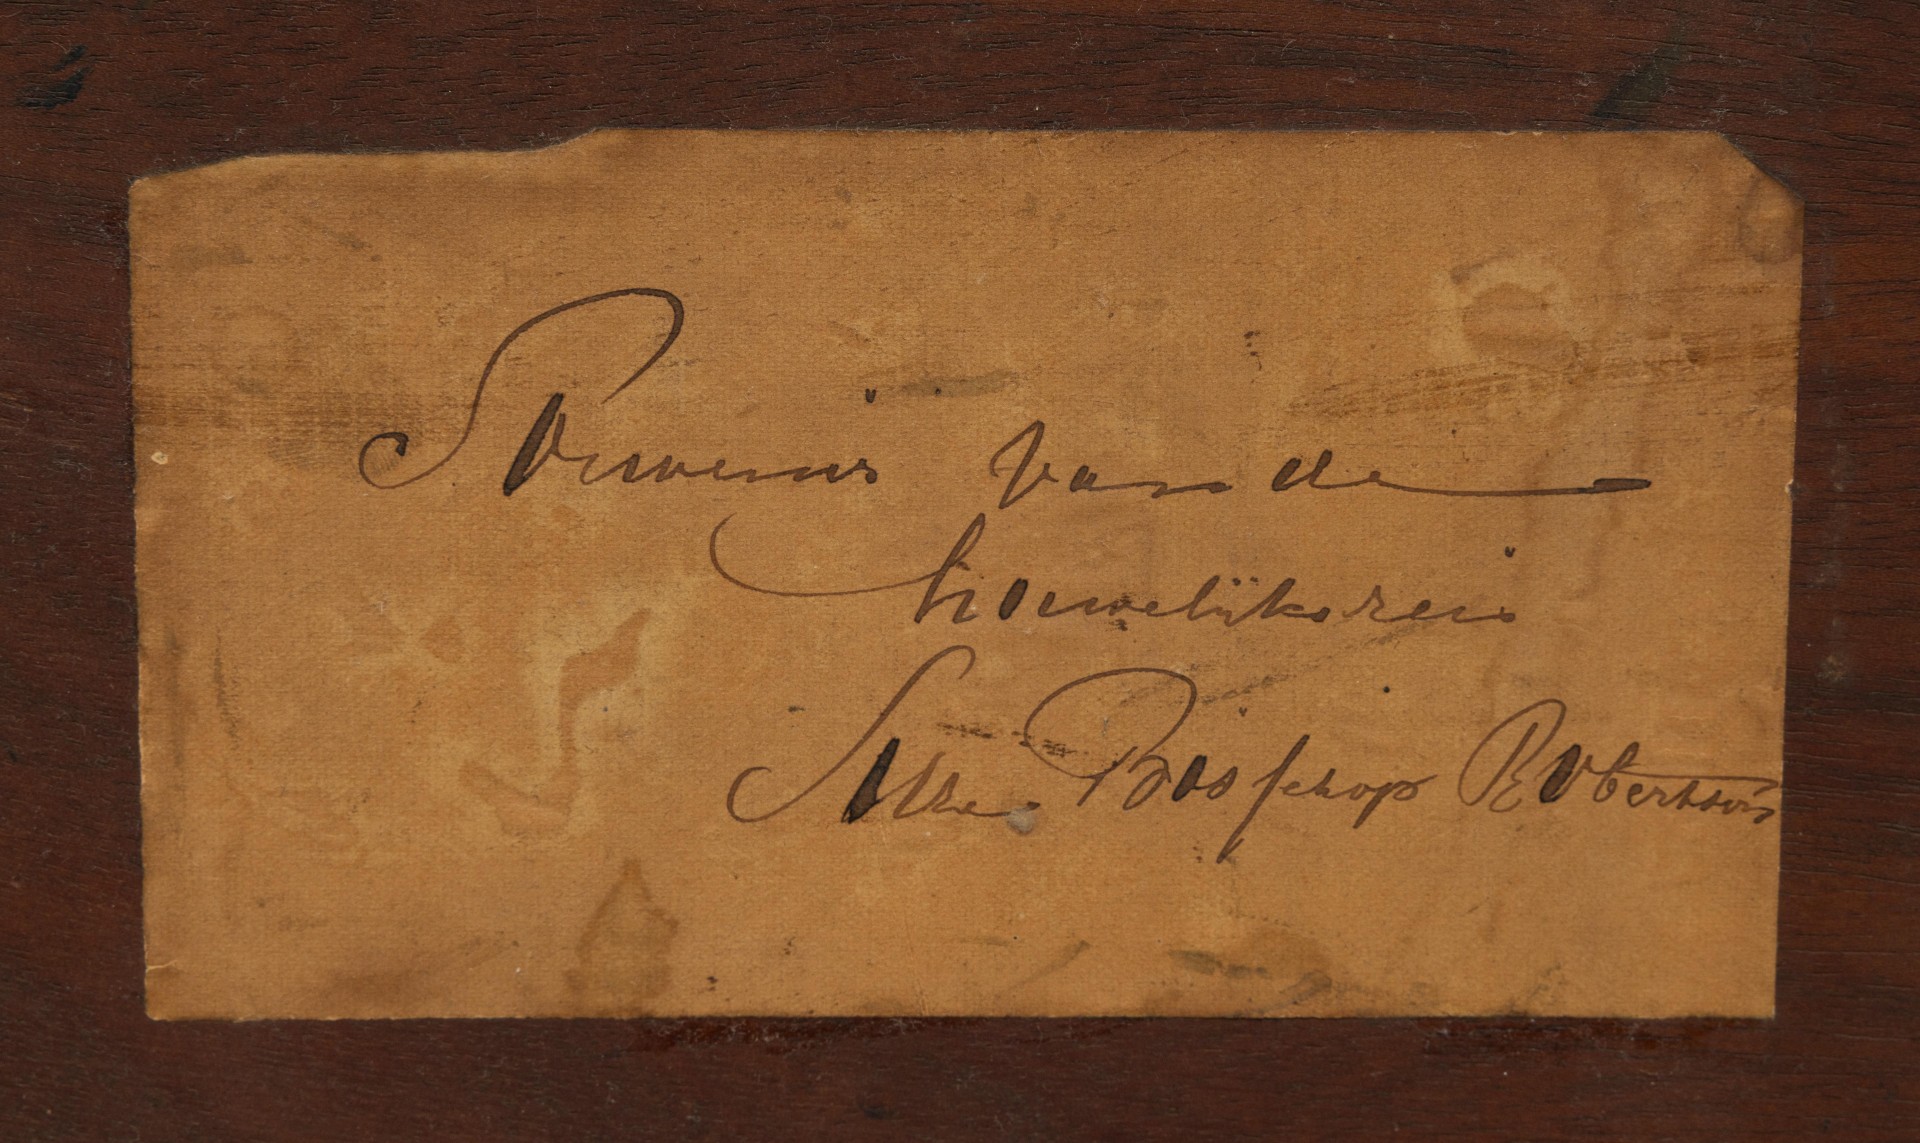 Souvenir van de
houwelijksreis
Bisschop Robertson